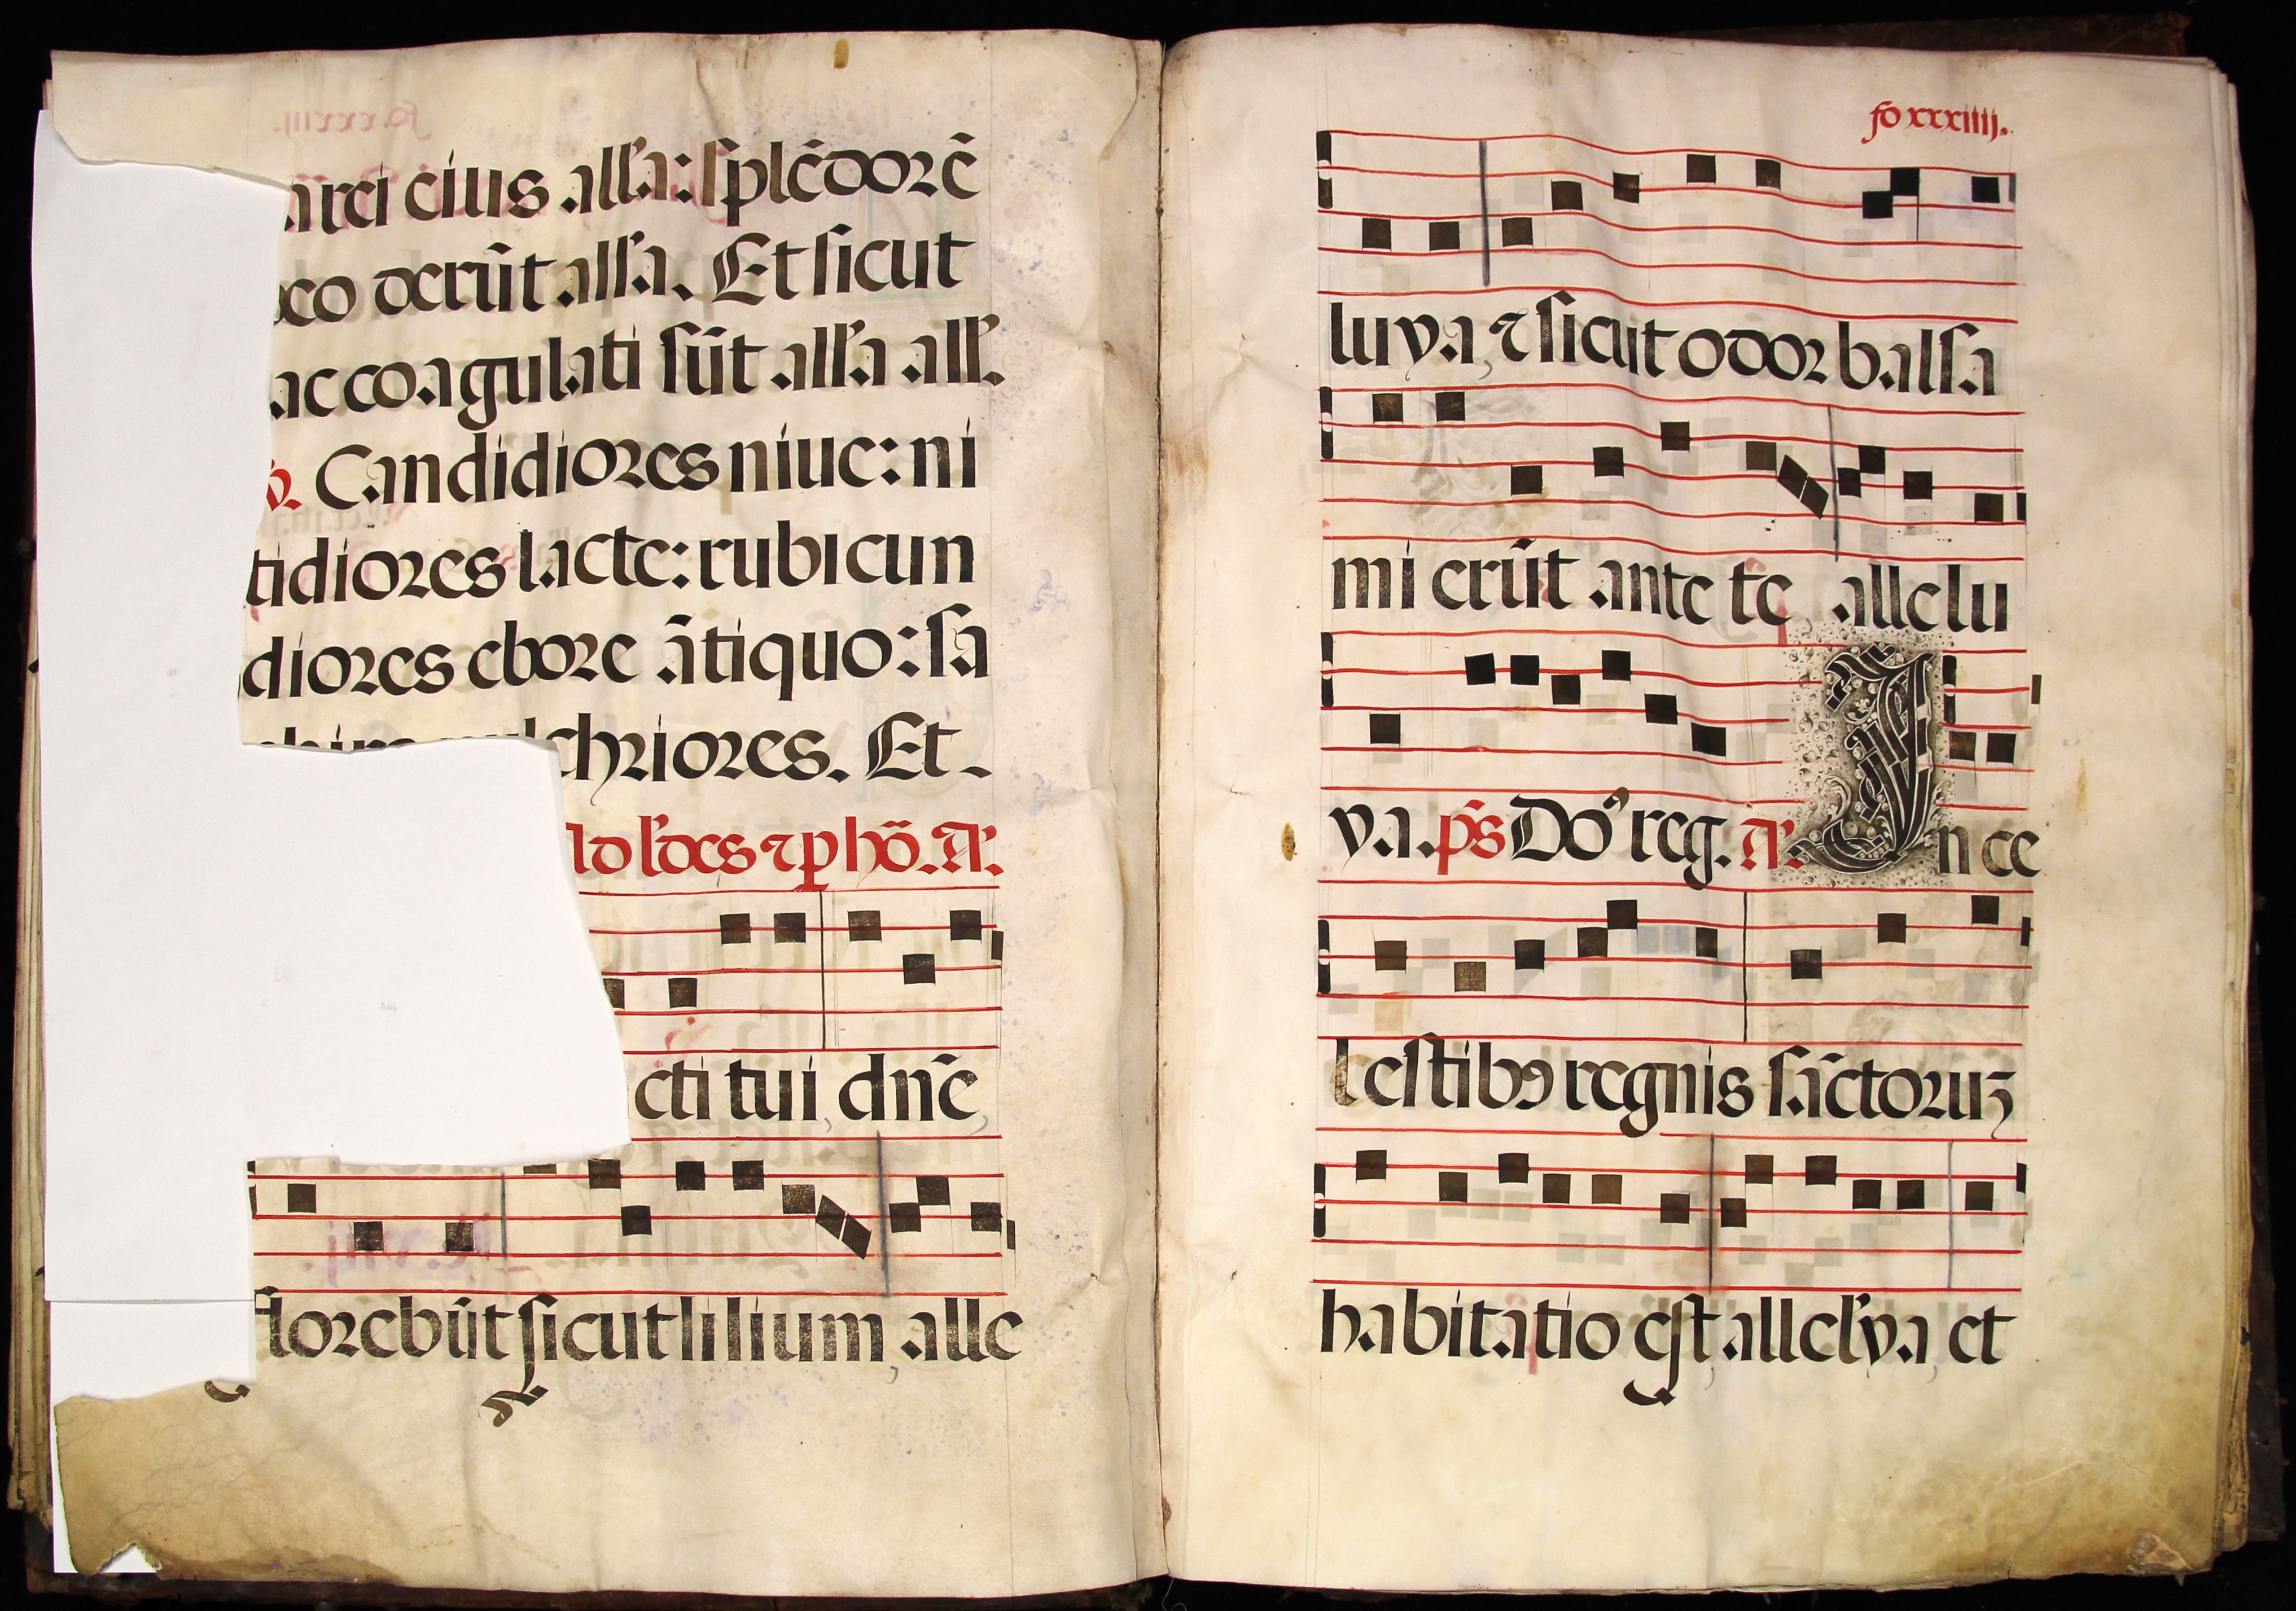 arei eius all'a: splēdorē
co derūt all'a. Et sicut
lac coagulati sūt all'a all'.
℣. Candidiores niue: ni
tidiores lacte: rubicun
diores ebore ātiquo: sa
pulchriores. Et.
Ad l'des ⁊ ꝑ hō. A'.
cti tui, dn̄e,
florebūt sicut lilium, alle
fo xxxiiij.
luya, ⁊ sicut odor balsa
mi erūt ante te, allelu
ya. p̄s Do' reg. A'. In ce
lestibꝰ regnis sāctoruꝫ
habitatio est, allel'ya, et